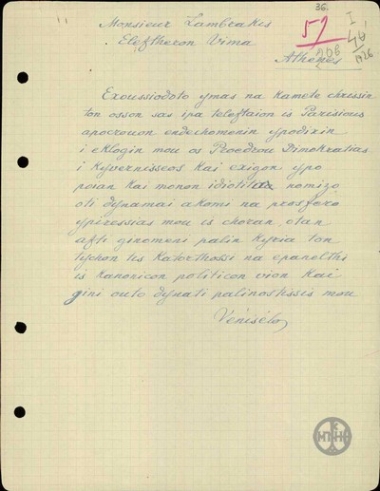 36.
Monsieur Lambrakis
Eleftheron Vima
Athènes
Exoussiodoto ymas na kamete chrissin
ton osson sas ipa teleftaion is Parisious
apocrouon endechomenin ypodixin
i eklogin mou os Proedrou Dimokratias
i Kyvernisseos kai exigon ypo
poian kai monon idiotita nomizo
oti dynamai akomi na prosfero
ypiressias mou is choran, otan
afti ginomeni palin kyria ton
tychon tis katorthossi na epanelthi
is kanonicon politicon vion kai
gini outo dynati palinostissis mou
Vénisélos